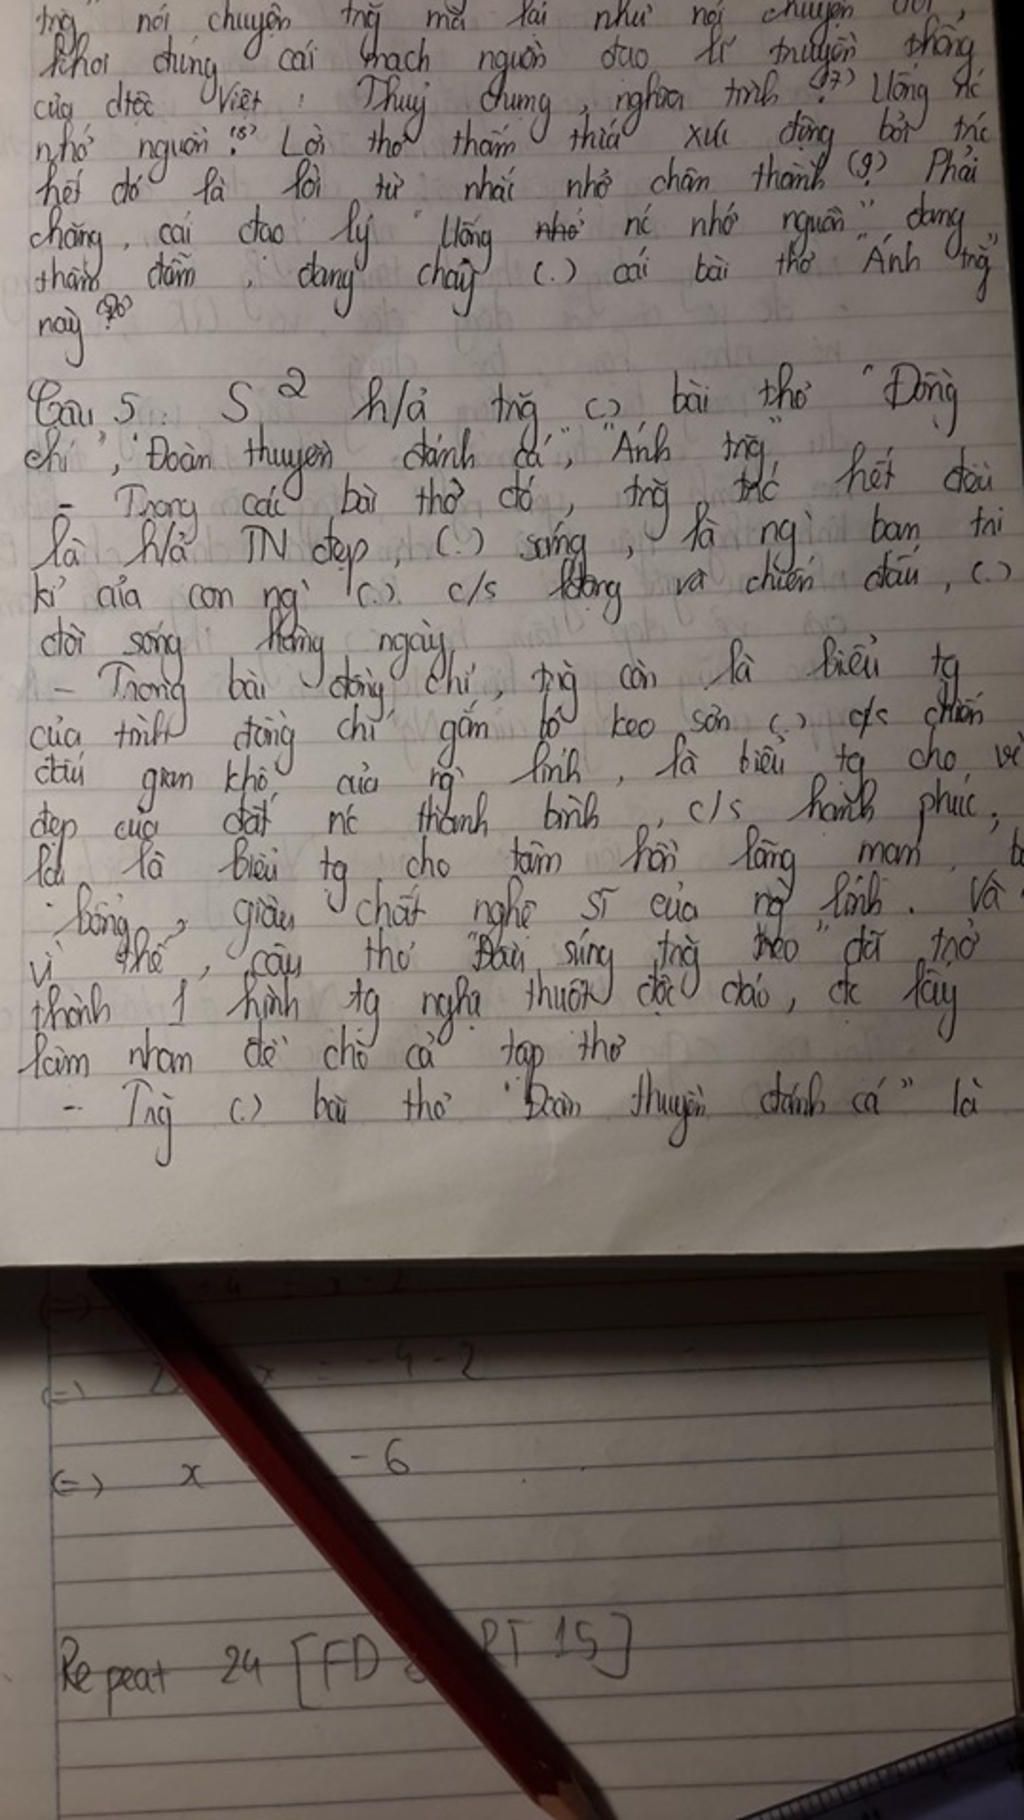 nói chuyện trg mà lại như nói chuyện đời,
khơi đúng cái mạch nguồn đạo lí truyền thống
của dtộc Việt : Thuỷ chung, nghĩa tình (7) Uống nc
nhớ nguồn (8) Lời thơ thấm thía xúc động bởi trc
hết đó là lời tự nhắc nhở chân thành (9) Phải
chăng, cái đạo lý "Uống nhớ nc nhớ nguồn" đang
thấm đẫm, đang chảy (.) cái bài thơ "Ánh trg"
này (10)?
Câu 5: S² h/ả trg (.) bài thơ "Đồng
chí", "Đoàn thuyền đánh cá", "Ánh trg"
- Trong các bài thơ đó, trg trc hết đều
là h/ả TN đẹp, (.) sáng, là ng bạn tri
kỉ của con ng (.) c/s lđộng và chiến đấu, (.)
đời sống hằng ngày
- Trong bài đồng chí, trg còn là biểu tg
của tình đồng chí gắn bó keo sơn (.) c/s chiến
đấu gian khổ của ng lính, là biểu tg cho vẻ
đẹp của đất nc thanh bình, c/s hạnh phúc,
là biểu tg cho tâm hồn lãng mạn,
bổng, giàu chất nghệ sĩ của ng lính. Và
vì thế, câu thơ "Đầu súng trg treo" đã trở
thành 1 hình tg nghệ thuật độc đáo, đc lấy
làm nhan đề cho cả tập thơ
- Trg (.) bài thơ "Đoàn thuyền đánh cá" là
(=) = -4-2
(=) x -6
Repeat 24 [FD RT 15]